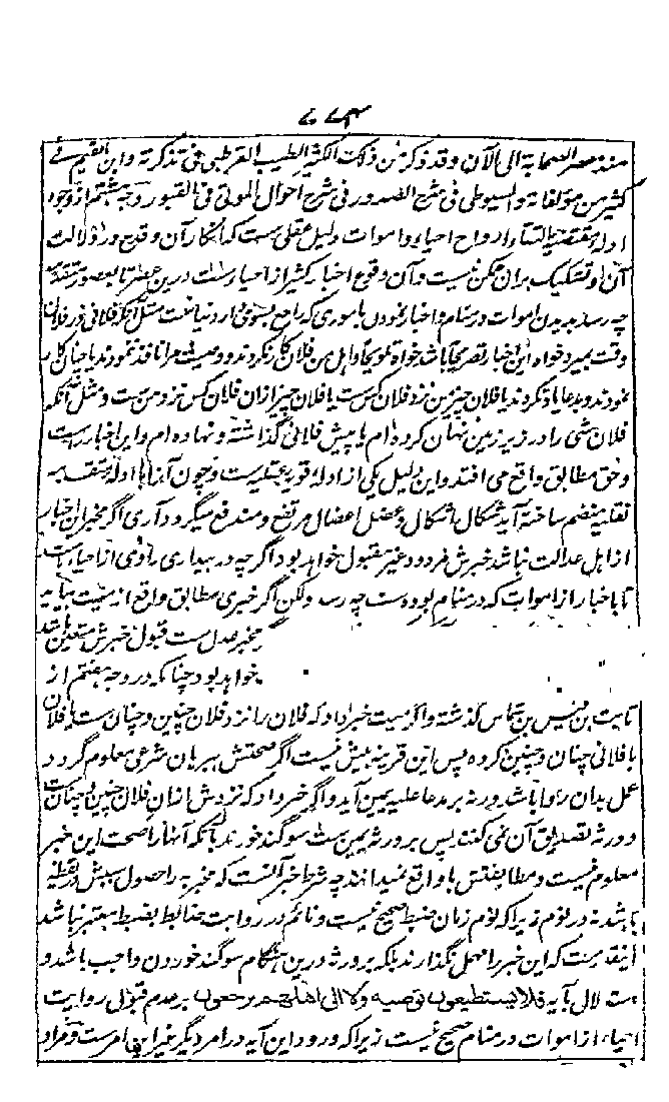 ۷۷۳
منذ عصر الصحابة الى الآن وقد ذكر من ذلك الكثير الطيب القرطبى فى تذكرته وابن القيم فے
كثير من مؤلفاته والسيوطى فى شرح الصدور فى شرح احوال الموتى فى القبور وجه هشتم از وجوه
ادله مقتضية التقاء ارواح احياء واموات دليل عقلى ست كه انكار آن و قدح در دلالت
آن او تشكيك بران ممكن نيست وآن وقوع اخبار كثير از احياء ست درين عصر تا بعصور متقدمه
چه رسد بديدن اموات در منام و اخبار نمودن بامورى كه راجع بسوى دار دنياست مثل آنكه فلانى در فلان
وقت بميرد خواه اين اخبار تصريحاً باشد خواه تلويحاً و اهل من فلان كار نكردند و وصيت مرا نافذ نمودند يا چنان كار
نمودند و بدعا ياد نكردند يا فلان چيز من نزد فلان كس ست يا فلان چيز ازان فلان كس نزد من ست و مثل آنكه
فلان شى را در زير زمين نهان كرده ام يا پيش فلانى گذاشته و نهاده ام و اين اخبار راست
و حق مطابق واقع مى افتد و اين دليل يكى از ادلۀ قويه عقليه ست و چون آنرا با ادلۀ متقدمه
نقليه منضم ساخته آيد اشكال باشكال و عضل اعضال مرتفع و مندفع ميگردد آرى اگر مخبر اين اخبار
از اهل عدالت نباشد خبرش مردود و غير مقبول خواهد بود اگرچه در بيدارى راوى از احياء ست
تا باخبار از اموات كه در منام بوده ست چه رسد و لكن اگر خبرى مطابق واقع از ميت بيايد
مخبر عدل ست قبول خبرش متعين باشد
خواهد بود چنانكه در وجه هفتم از
ثابت بن قيس بن شماس گذشته و اگر ميت خبر داد كه فلان را نزد فلان چنين و چنان ست يا فلان
با فلانى چنان و چنين كرده پس اين قرينه بيش نيست اگر صحتش ببرهان شرعى معلوم گردد
عمل بدان روا باشد ورنه بر مدعا عليه يمين آيد و اگر خبر داد كه نزدش ازان فلان چنين و چنان ست
و ورثه تصديق آن نمى كنند پس بر ورثه يمين ست سوگند خورند بآنكه آنها را صحت اين خبر
معلوم نيست و مطابقتش با واقع نميدانند چه شرط خبر آنست كه مخبر به را حصول سببش در يقظه
باشد نه در نوم زيرا كه نوم زمان ضبط صحيح نيست و نائم در روايت ضابط بضبط معتبر نباشد
اينقدر ست كه اين خبر را مهمل نگذارند بلكه بر ورثه درين هنگام سوگند خوردن واجب باشد و
ست لال بآيه فلا يستطيعون توصية ولا الى اهلهم يرجعون بر عدم قبول روايت
احياء از اموات در منام صحيح نيست زيرا كه ورود اين آيه در امر ديگر غير اين امر ست و مراد